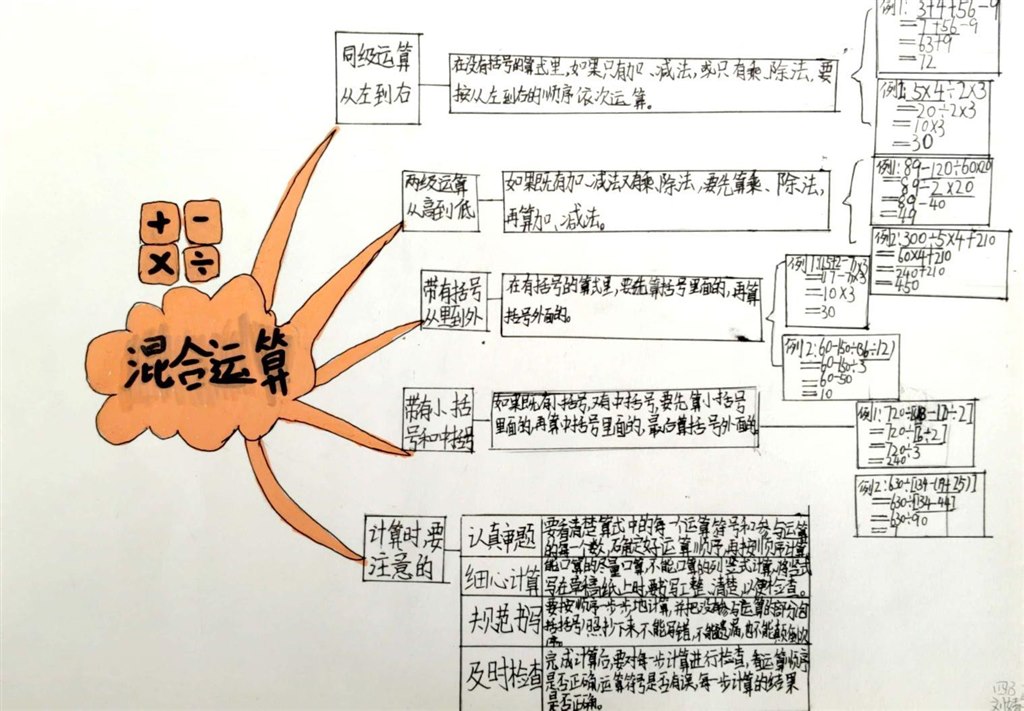 混合运算
+ -
× ÷
同级运算
从左到右
在没有括号的算式里,如果只有加、减法,或只有乘、除法,要
按从左到右的顺序依次运算。
例1: 3+4+56-9
=7+56-9
=63+9
=72
5×4÷2×3
=20÷2×3
=10×3
=30
两级运算
从高到低
如果既有加、减法又有乘、除法,要先算乘、除法,
再算加、减法。
例1:89-120÷60×20
=89-2×20
=89-40
=49
例2:300÷5×4+210
=60×4+210
=240+210
=450
带有括号
从里到外
在有括号的算式里,要先算括号里面的,再算
括号外面的。
=10×3
=30
例2:60-150÷(36÷12)
=60-150÷3
=60-50
=10
带有小括
号和中括号
如果既有小括号,又有中括号,要先算小括号
里面的,再算中括号里面的,最后算括号外面的
=720÷[6÷2]
=720÷3
=240
=630÷[134-44]
=630÷90
计算时,要
注意的
认真审题
要看清楚算式中的每一个运算符号和参与运算
的每一个数,确定好运算顺序,再按顺序计算
细心计算
能口算的尽量口算,不能口算的列竖式计算,将竖式
写在草稿纸上时,要书写工整、清楚,以便检查。
规范书写
要按顺序一步步地计算,并把没参与运算的部分包
括括号照抄下来,不能写错,不能遗漏,也不能颠倒次
序。
及时检查
完成计算后,要对每一步计算进行检查,看运算顺序
是否正确,运算符号是否有误,每一步计算的结果
是否正确。